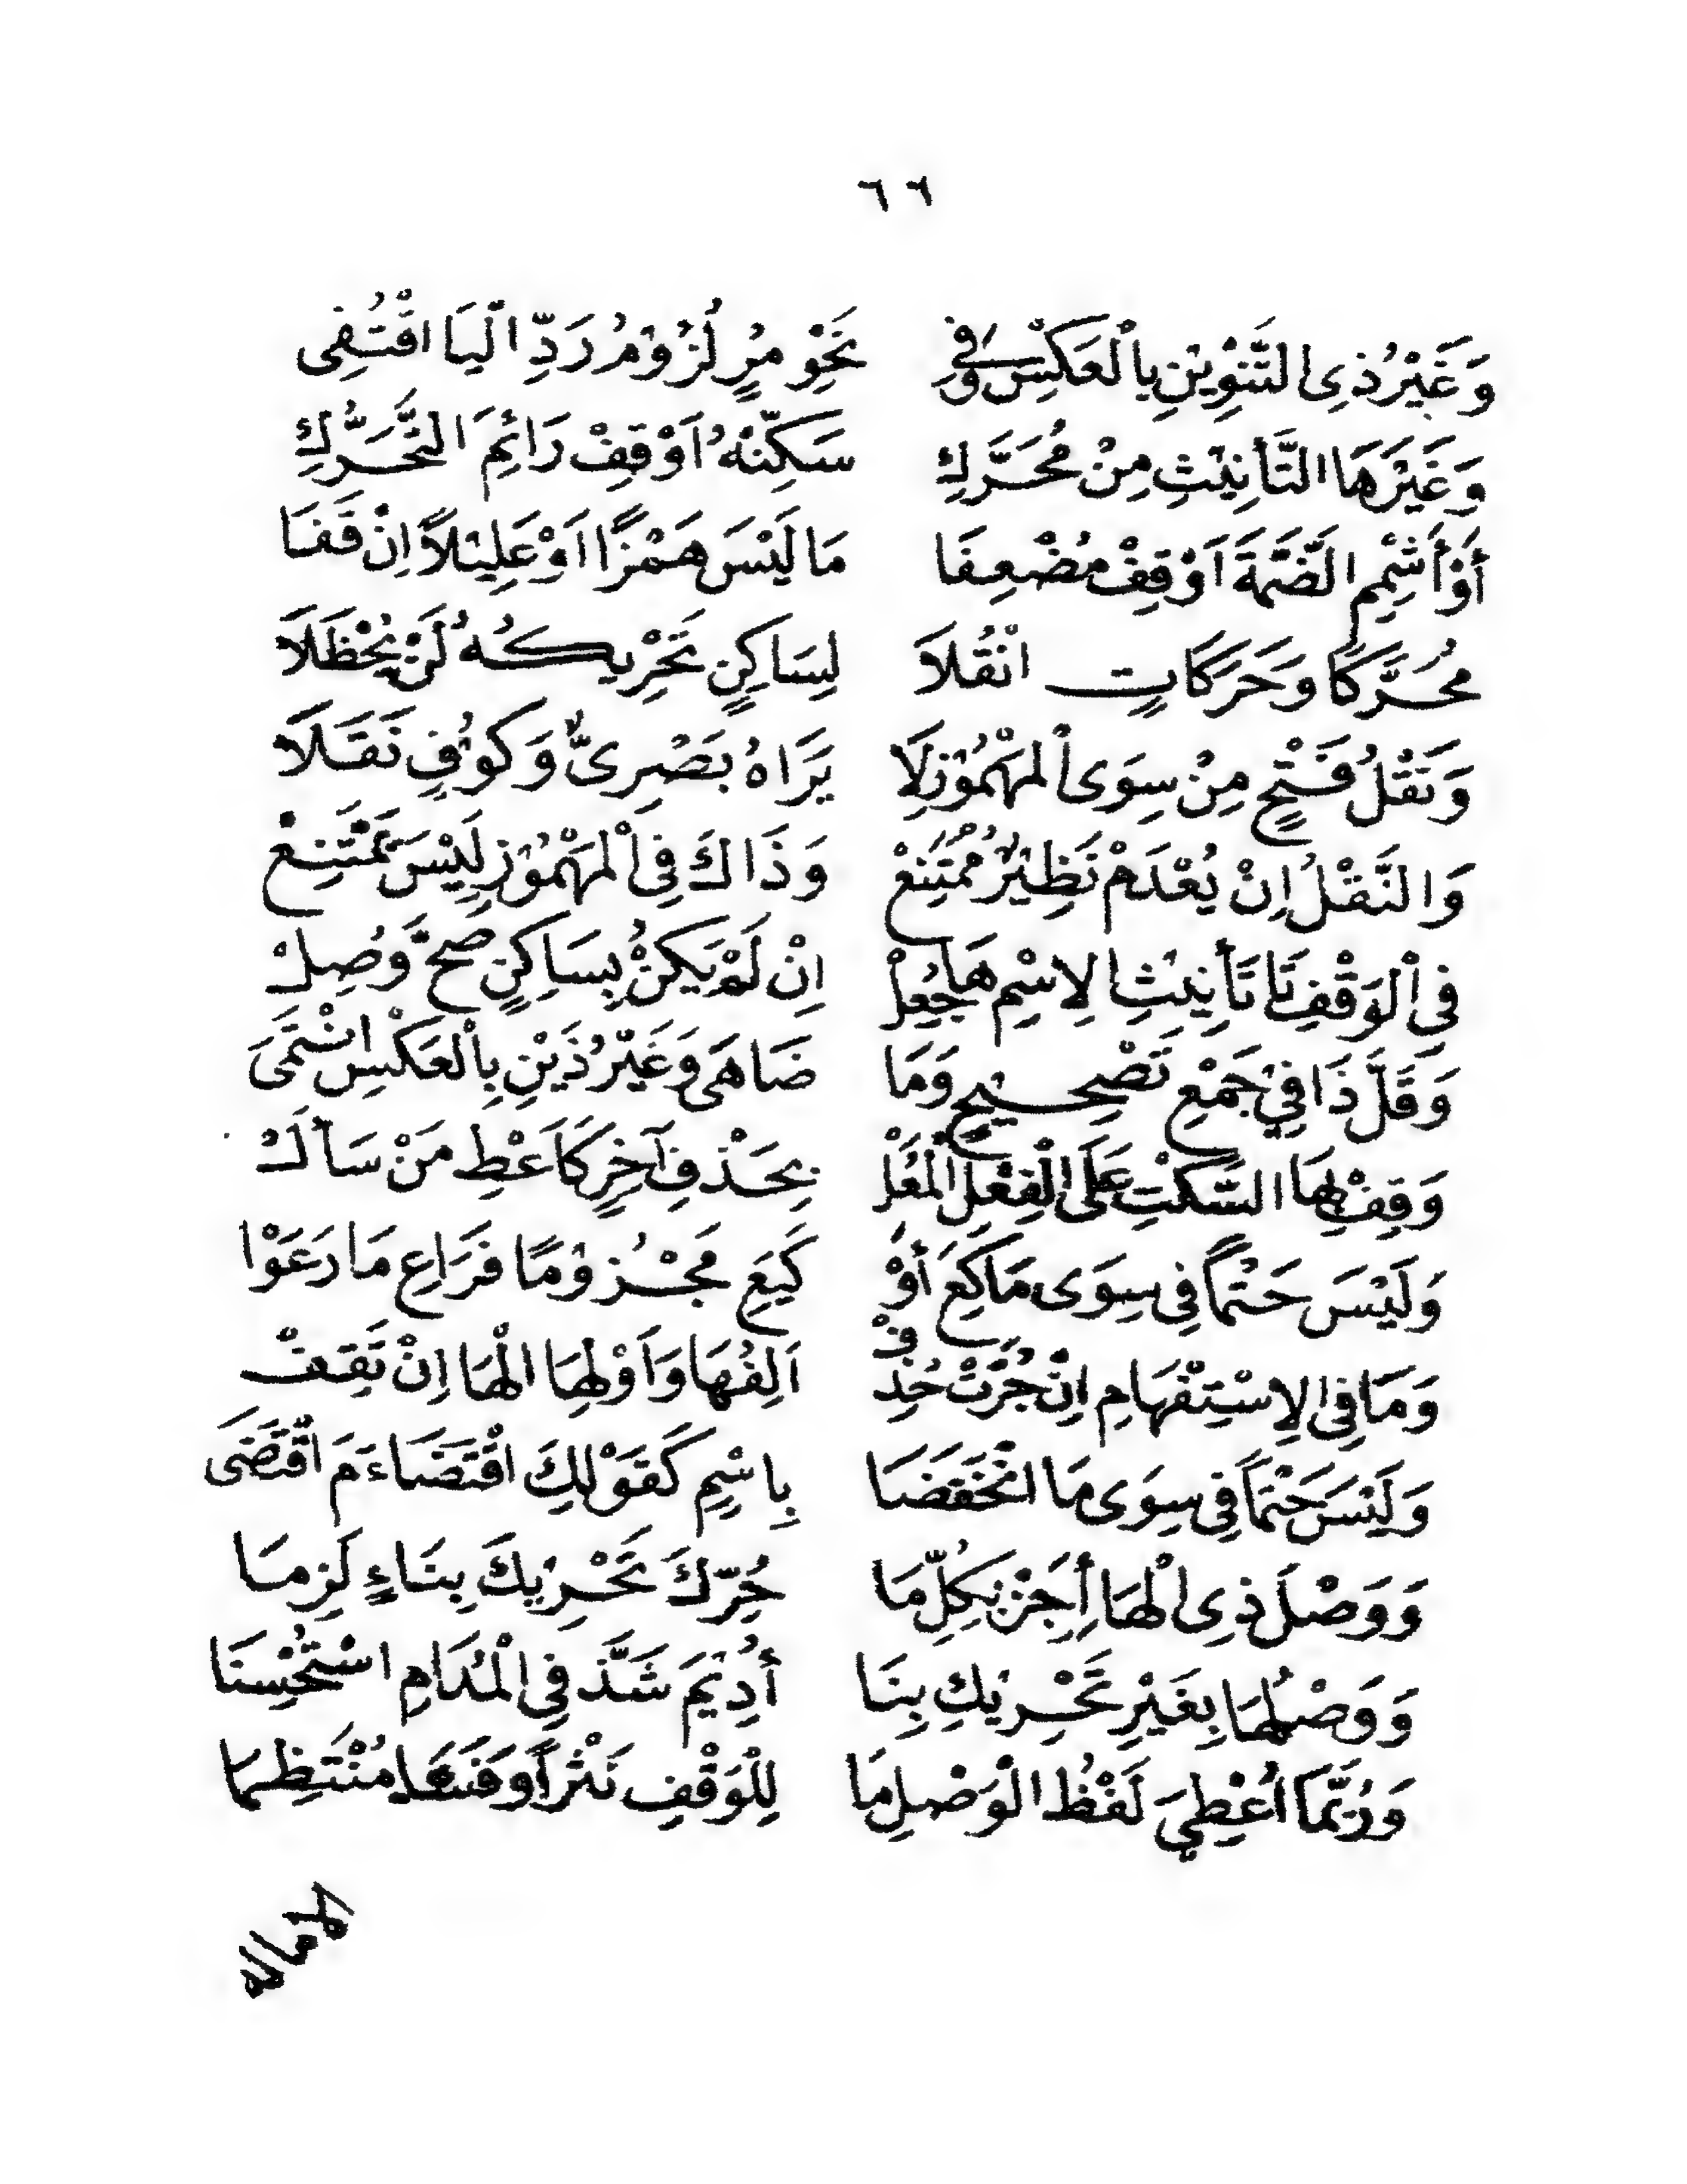 ٦٦
وَغَيْرُ ذِى التَّنْوِيْنِ بِالْعَكْسِ وَفِى نَحْوِ مُرٍ لُزُوْمُ رَدِّ الْيَا اقْتُفِى
وَغَيْرَ هَا التَّأنِيْثِ مِنْ مُحَرَّكِ سَكِّنْهُ اَوْ قِفْ رَائِمَ التَّحَرُّكِ
أَوْ أَشْمِمِ الضَّمَّةَ اَوْ قِفْ مُضْعِفَا مَا لَيْسَ هَمْزًا اَوْ عَلِيْلاً اِنْ قَفَا
مُحَرَّكًا وَحَرَكَاتٍ انْقُلاَ لِسَاكِنٍ تَحْرِيكُهُ لَنْ يُحْظَلاَ
وَنَقْلُ فَتْحٍ مِنْ سِوَى الْمَهْمُوْزِ لَا يَرَاهُ بَصْرِىٌّ وَكُوْفٍ نَقَلاَ
وَالنَّقْلُ اِنْ يُعْدَمْ نَظِيْرٌ مُمْتَنِعْ وَذَاكَ فِى الْمَهْمُوْزِ لَيْسَ يَمْتَنِعْ
فِى الْوَقْفِ تَا تَأنِيْثِ الاِسْمِ هَا جُعِلْ اِنْ لَمْ يَكُنْ بِسَاكِنٍ صَحَّ وُصِلْ
وَقَلَّ ذَا فِيْ جَمْعِ تَصْحِيحٍ وَمَا ضَاهَى وَغَيْرُ ذَيْنِ بِالْعَكْسِ انْتَمَى
وَقِفْ بِهَا السَّكْتِ عَلَى الْفِعْلِ الْمُعَلْ بِحَذْفِ آخِرٍ كَاَعْطِ مَنْ سَأَلْ
وَلَيْسَ حَتْمًا فِى سِوَى مَا كَعِ أَوْ كَيَعِ مَجْزُوْمًا فَرَاعِ مَا رَعَوْا
وَمَا فِى الاِسْتِفْهَامِ اِنْ جُرَّتْ حُذِفْ اَلِفُهَا وَاَوْلِهَا الْهَا اِنْ تَقِفْ
وَلَيْسَ حَتْمًا فِى سِوَى مَا انْخَفَضَا بِاسْمٍ كَقَوْلِكَ اقْتَضَاءَ مَ اقْتَضَى
وَوَصْلَ ذِى الْهَا أَجِزْ بِكُلِّ مَا حُرِّكَ تَحْرِيْكَ بِنَاءٍ لَزِمَا
وَوَصْلُهَا بِغَيْرِ تَحْرِيْكِ بِنَا أُدِيْمَ شَذَّ فِى الْمُدَامِ اسْتُحْسِنَا
وَرُبَّمَا اُعْطِيَ لَفْظُ الْوَصْلِ مَا لِلْوَقْفِ نَثْراً وَفَشَا مُنْتَظِمَا
الامالة